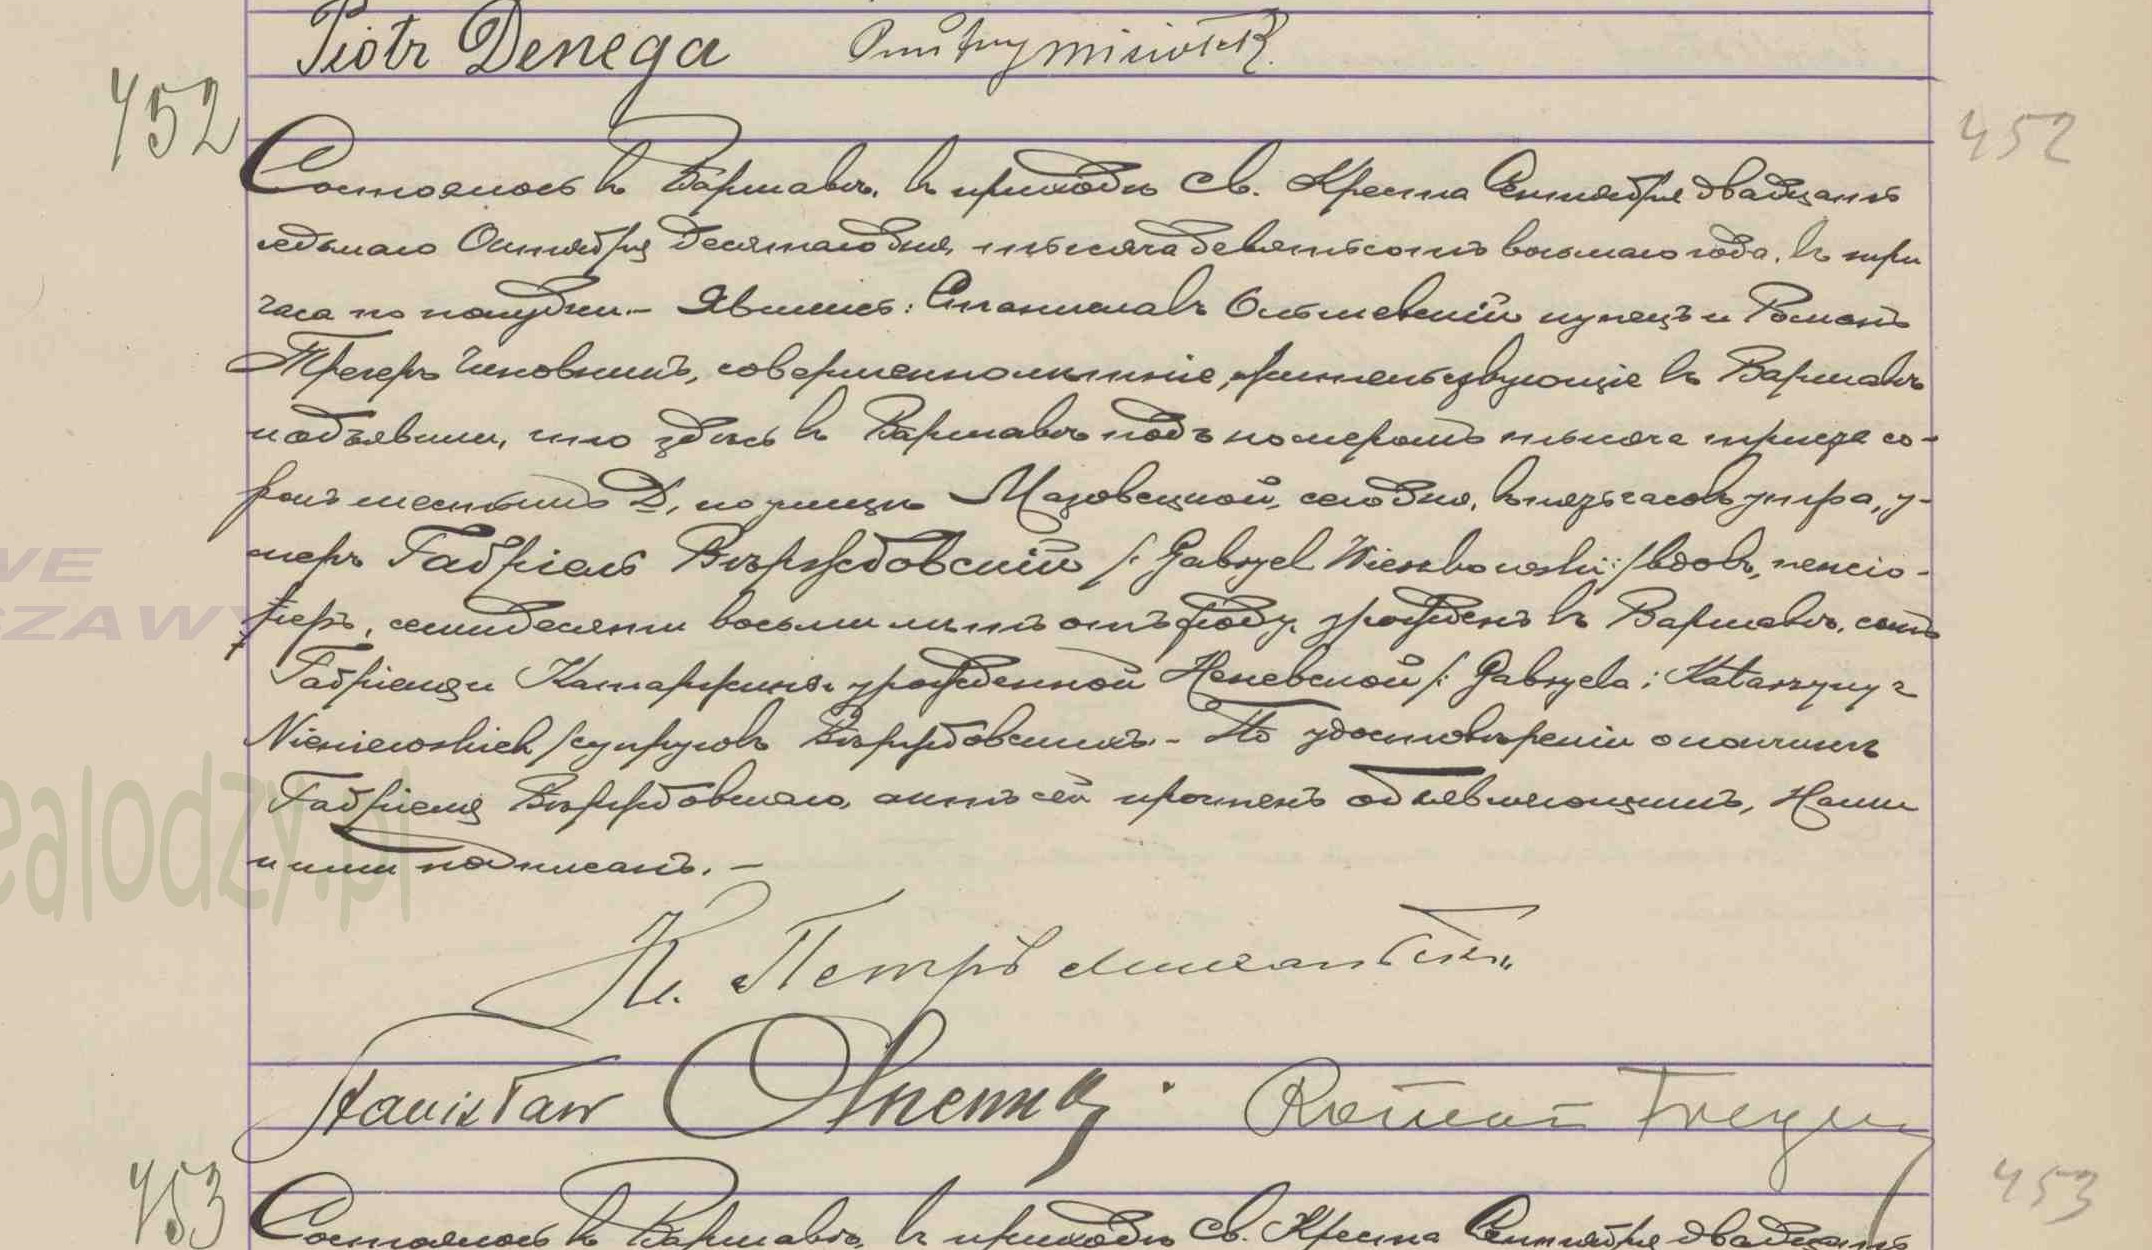 Piotr Denega
452
452
Состоялось въ Варшавѣ, въ приходѣ Св. Креста Сентября двадцать
седьмаго Октября десятаго дня, тысяча девятьсотъ восьмаго года, въ три
часа по полудни. – Явились: Станиславъ Ольшевскій купецъ и Романъ
Трегеръ чиновникъ, совершеннолѣтніе, жительствующіе въ Варшавѣ
и объявили, что здѣсь въ Варшавѣ подъ номеромъ тысяча триста со-
рокъ шестымъ D, по улицѣ Мазовецкой, сего дня, въ пять часовъ утра, у-
меръ Габріель Вѣржбовскій /: Gabryel Wierzbowski :/ вдовъ, пенсіо-
неръ, семидесяти восьми лѣтъ отъ роду, урожденъ въ Варшавѣ, сынъ
Габріеля и Катаржины, урожденной Неневской /: Gabryela i Katarzyny z
Nieniewskich / супруговъ Вѣржбовскихъ. – По удостовѣреніи о кончинѣ
Габріеля Вѣржбовскаго, актъ сей прочтенъ объявляющимъ, Нами
и ими подписанъ. –
Кс. Петръ
Stanisław Roman Treger
453
453
Состоялось въ Варшавѣ, въ приходѣ Св. Креста Сентября двадцать
WE
SZAWY
ealodzy.pl